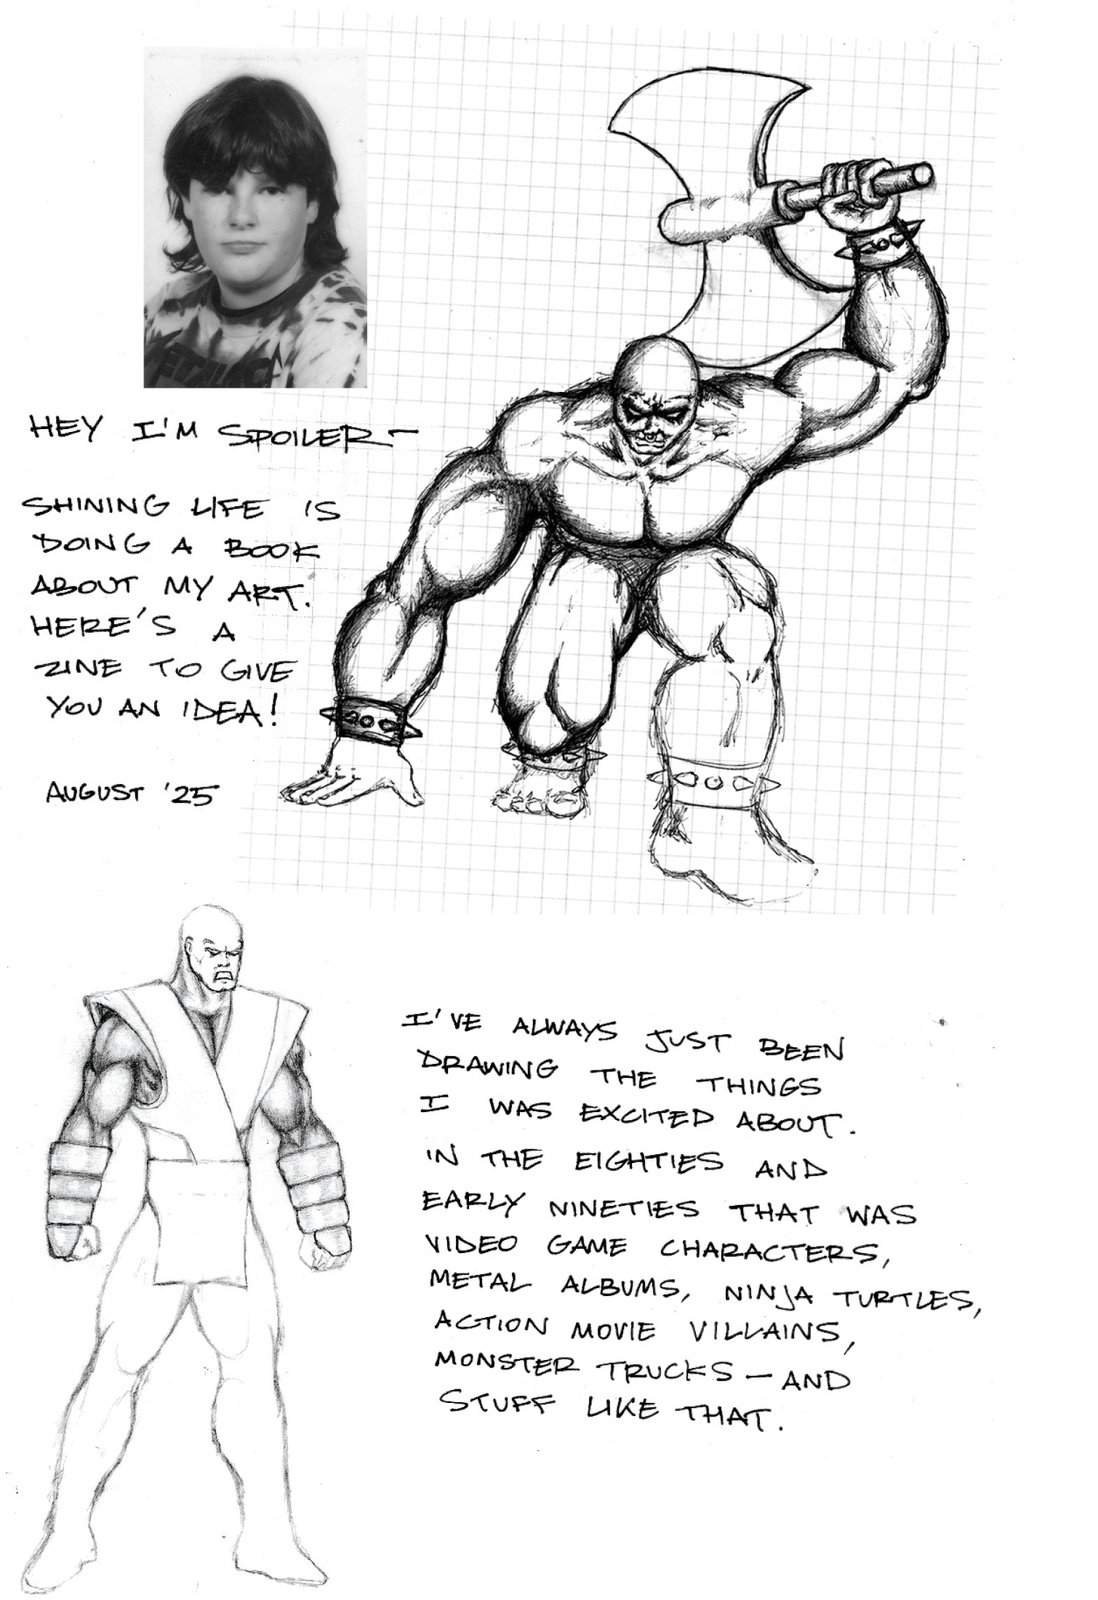 HEY I'M SPOILER—
SHINING LIFE IS
DOING A BOOK
ABOUT MY ART.
HERE'S A
ZINE TO GIVE
YOU AN IDEA!
AUGUST '25
I'VE ALWAYS JUST BEEN
DRAWING THE THINGS
I WAS EXCITED ABOUT.
IN THE EIGHTIES AND
EARLY NINETIES THAT WAS
VIDEO GAME CHARACTERS,
METAL ALBUMS, NINJA TURTLES,
ACTION MOVIE VILLAINS,
MONSTER TRUCKS — AND
STUFF LIKE THAT.